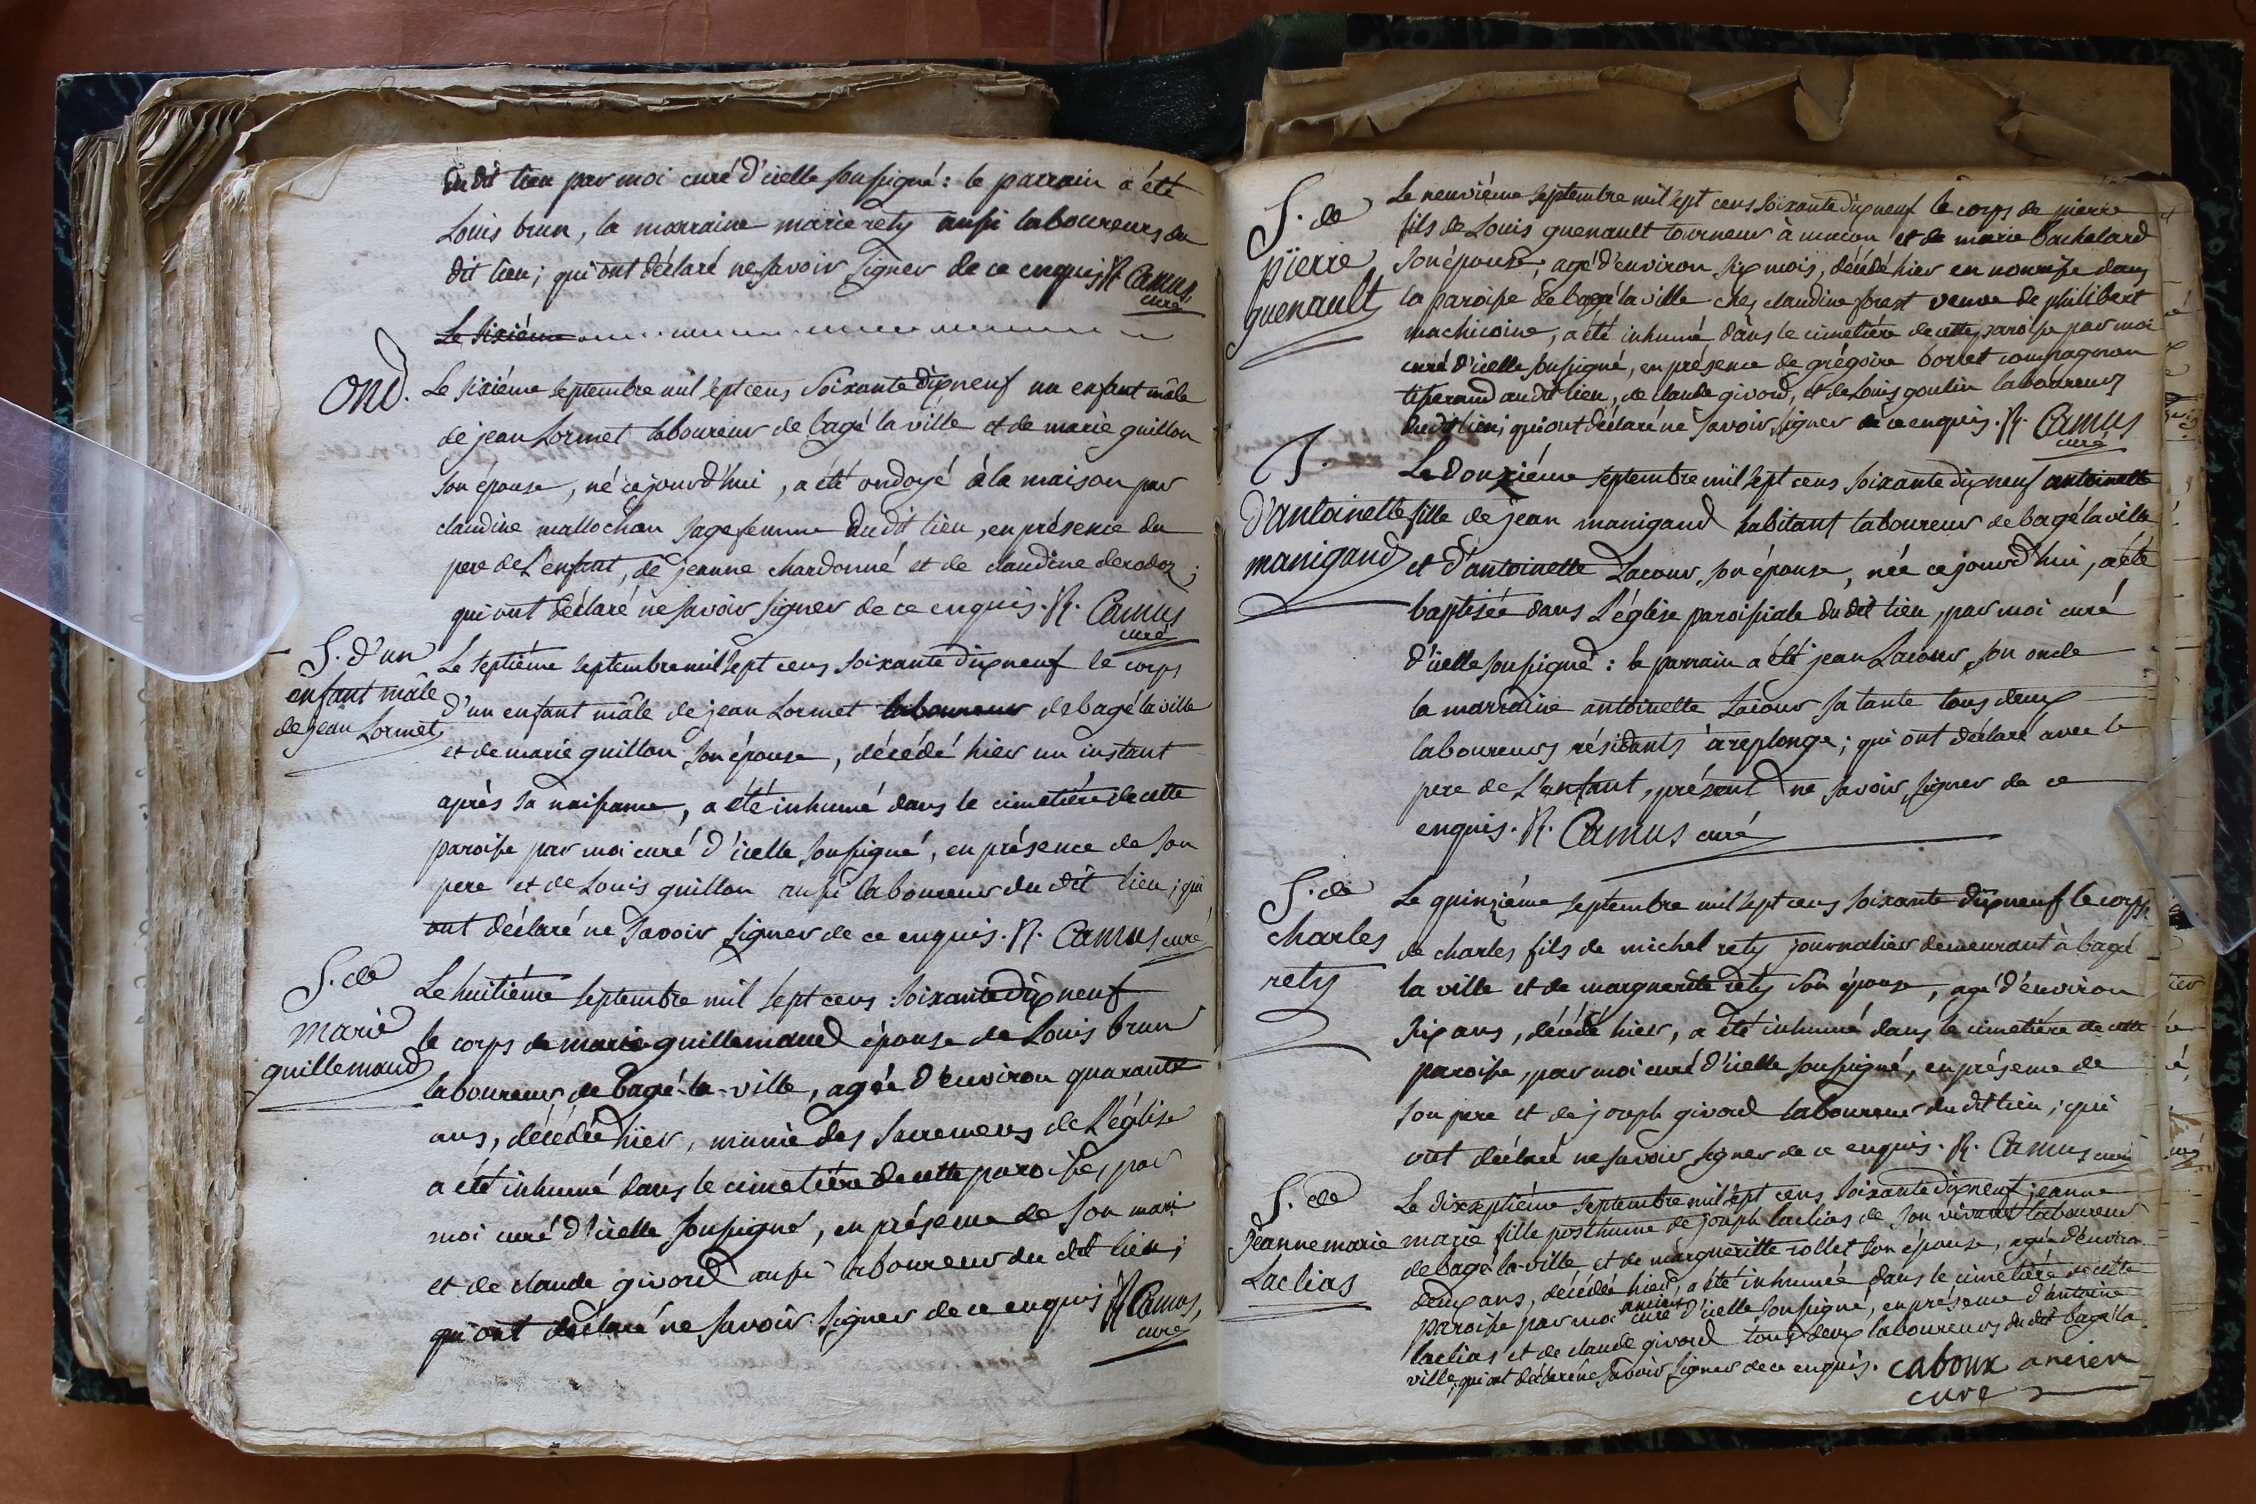 du dit lieu par moi curé d'icelle soussigné : le parrain a été
Louis brun, la marraine marie rety aussi laboureurs du
dit lieu ; qui ont déclaré ne savoir signer de ce enquis. R. Camus
curé
Le sixiéme
Ond.
Le sixiéme septembre mil sept cens soixante dix neuf un enfant mâle
de jean Lormet laboureur de bagé la ville et de marie guillon
son épouse, né ce jourd'hui, a été ondoyé à la maison par
claudine mallochon sage femme du dit lieu, en présence du
pere de L'enfant, de jeanne chardonné et de claudine
qui ont déclaré ne savoir signer de ce enquis. R. Camus
curé
S. d'un
enfant mâle
de jean Lormet
Le septiéme septembre mil sept cens soixante dix neuf le corps
d'un enfant mâle de jean Lormet laboureur de bagé la ville
et de marie guillon son épouse, décédé hier un instant
après sa naissance, a été inhumé dans le cimetiére de cette
paroisse par moi curé d'icelle soussigné, en présence de son
pere et de Louis guillon aussi laboureur du dit lieu ; qui
ont déclaré ne savoir signer de ce enquis. R. Camus curé
S. de
marie
guillemaud
Le huitiéme septembre mil sept cens soixante dix neuf
le corps de marie guillemaud épouse de Louis brun
laboureur de bagé-la-ville, agée d'environ quarante
ans, décédée hier, munie des sacremens de L'église
a été inhumé dans le cimetiére de cette paroisse, par
moi curé d'icelle soussigné, en présence de son mari
et de claude givord aussi laboureur du dit lieu ;
qui ont déclaré ne savoir signer de ce enquis R. Camus,
curé
S. de
pierre
guenault
Le neuviéme septembre mil sept cens soixante dix neuf le corps de pierre
fils de Louis guenault tourneur à macon et de marie bachelard
son épouse, agé d'environ six mois, décédé hier en nourrisse dans
la paroisse de bagé la ville chez claudine forest veuve de philibert
machicoine, a été inhumé dans le cimetiére de cette paroisse par moi
curé d'icelle soussigné, en présence de grégoire borret compagnon
tisserand au dit lieu, de claude givord, et de Louis goulin laboureurs
du dit lieu ; qui ont déclaré ne savoir signer de ce enquis. R. Camus
curé
d'antoinette
manigand
Le douziéme septembre mil sept cens soixante dix neuf antoinette
fille de jean manigand habitant laboureur de bagé la ville
et d'antoinette Lacour son épouse, née ce jourd'hui, a été
baptisée dans L'église paroissiale du dit lieu, par moi curé
d'icelle soussigné : le parrain a été jean Lacour son oncle
la marraine antoinette Lacour sa tante tous deux
laboureurs résidants à replonge ; qui ont déclaré avec le
pere de L'enfant, présent ne savoir signer de ce
enquis. R. Camus curé
S. de
charles
rety
Le quinziéme septembre mil sept cens soixante dix neuf le corps
de charles fils de michel rety journalier demeurant à bagé
la ville et de marguerite rety son épouse, agé d'environ
six ans, décédé hier, a été inhumé dans le cimetiére de cette
paroisse, par moi curé d'icelle soussigné, en présence de
son pere et de joseph givord laboureur du dit lieu ; qui
ont déclaré ne savoir signer de ce enquis. R. Camus curé
S. de
Jeanne marie
Laclias
Le dixseptiéme septembre mil sept cens soixante dix neuf jeanne
marie fille posthume de joseph laclias de son vivant laboureur
de bagé-la-ville et de marguerite rollet son épouse, agée d'environ
deux ans, décédée hier, a été inhumée dans le cimetiére de cette
paroisse par moi ancien curé d'icelle soussigné, en présence d'antoine
laclias et de claude givord tous deux laboureurs du dit bagé la
ville, qui ont déclaré ne savoir signer de ce enquis. caboux ancien
curé